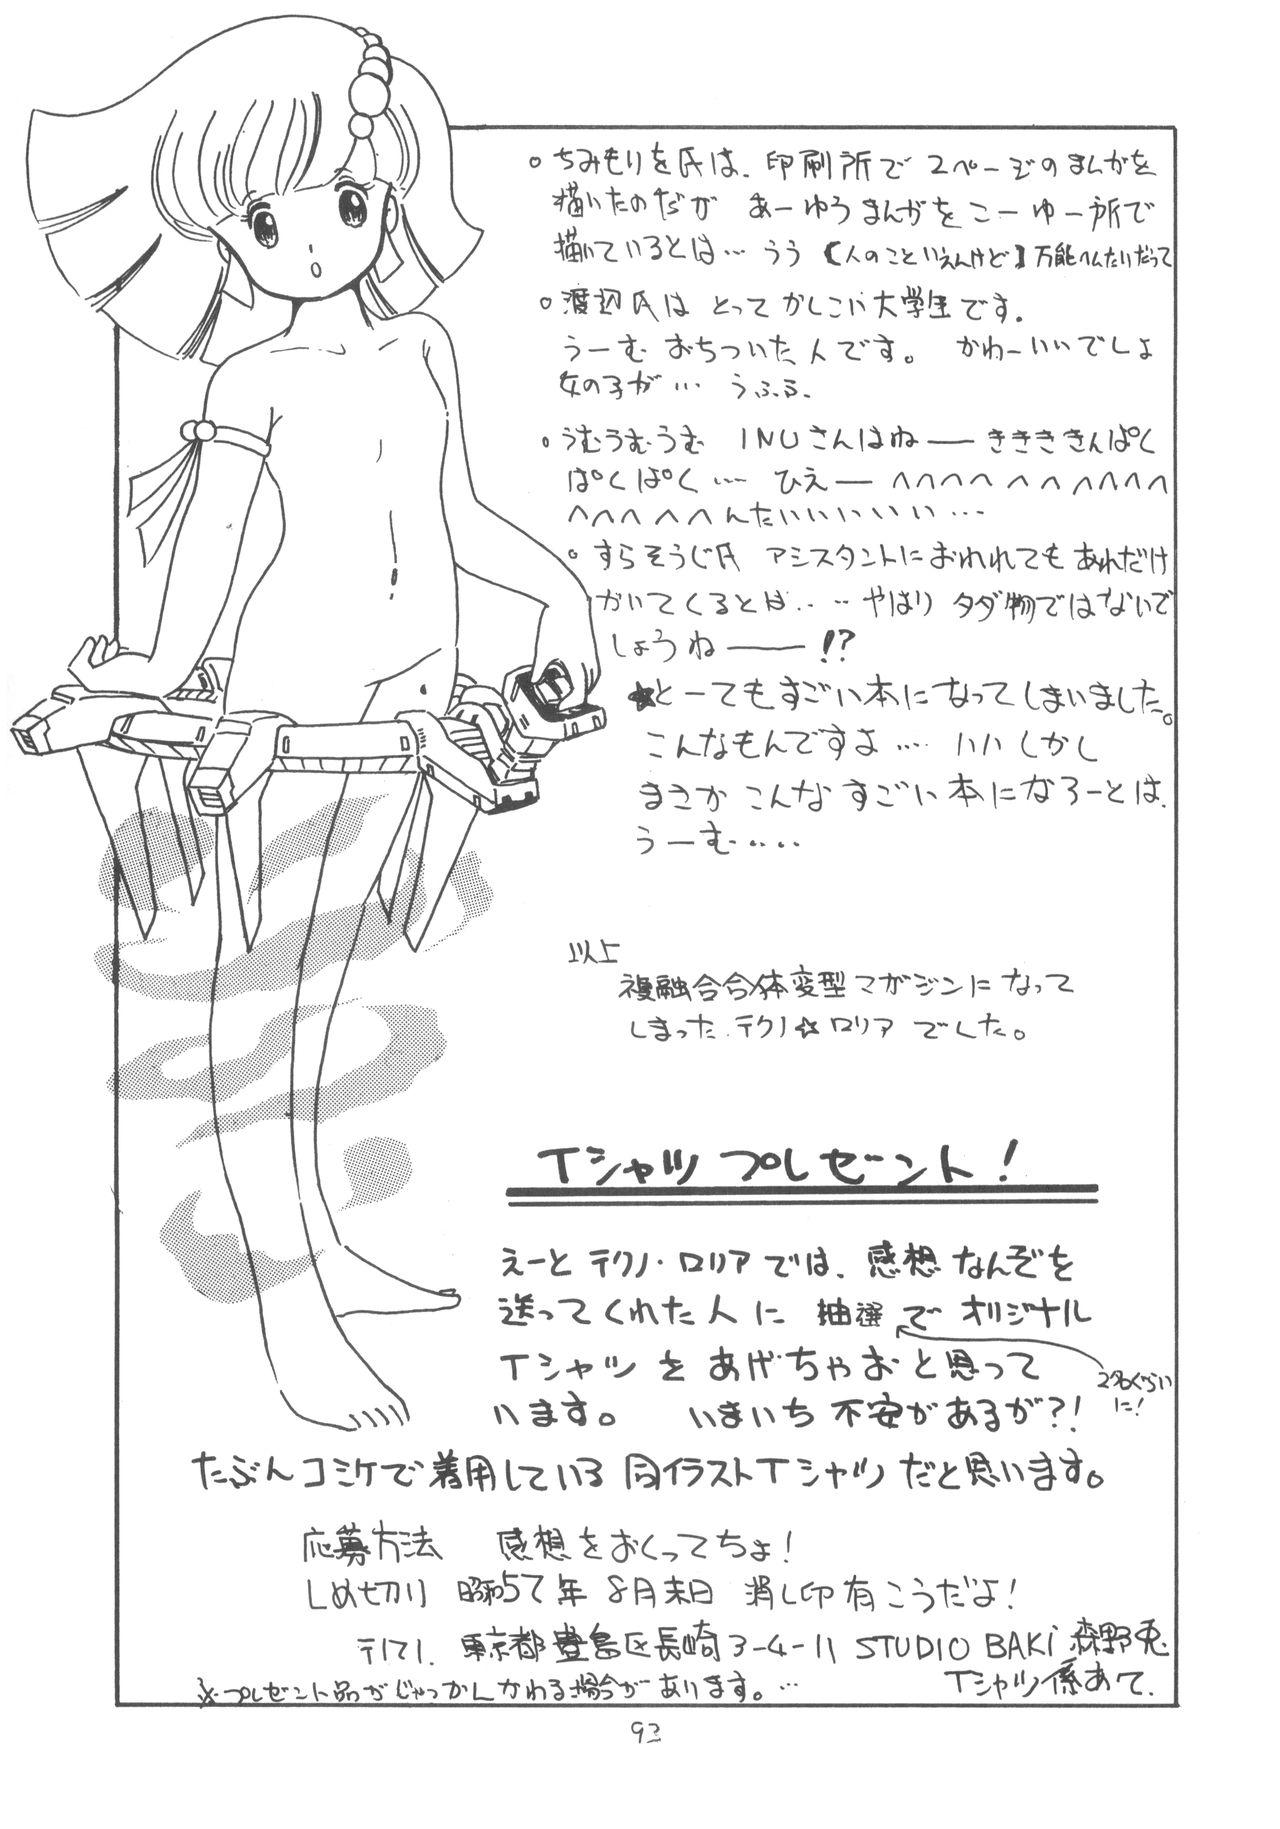 。ちみもりを氏は、印刷所で2ページのまんがを
描いたのだが あーゆうまんがをこーゆー所で
描いているとは…うう【人のこといえんけど】万能へんたいだって
。渡辺氏は とってかしこい大学生です。
うーむ おちついた人です。 かわーいいでしょ
女の子が… うふる、
。うむうむうむ INUさんはね──きききんぱく
ぱくぱく… ひえ─へへへへへへへへへへ
へへへへへへんたいいいいいい…
。すらそうじ氏 アシスタントにおわれてもあれだけ
かいてくるとは‥‥やはり タダ物ではないで
しょうね───!?
★とーてもすごい本になってしまいました。
こんなもんですよ… ハハ しかし
まさか こんなすごい本になろーとは、
うーむ‥‥
以上
複融合合体変型マガジンになって
しまった、テクノ☆ロリア でした。
Tシャツ プレゼント!
えーと テクノ・ロリア では、感想なんぞを
送ってくれた人に 抽選で オリジナル
Tシャツ を あげちゃおと思って
2名ぐらい
に!
います。 いまいち 不安があるが?!
たぶんコミケで着用している同イラストTシャツだと思います。
応募方法 感想をおくってちょ!
しめ切り 昭和57年 8月末日 消し印有こうだよ!
〒171. 東京都豊島区長崎3-4-11 STUDIO BAKi 森野兎
Tシャツ係あて.
※プレゼント品がじゃっかんかわる場合があります。…
93